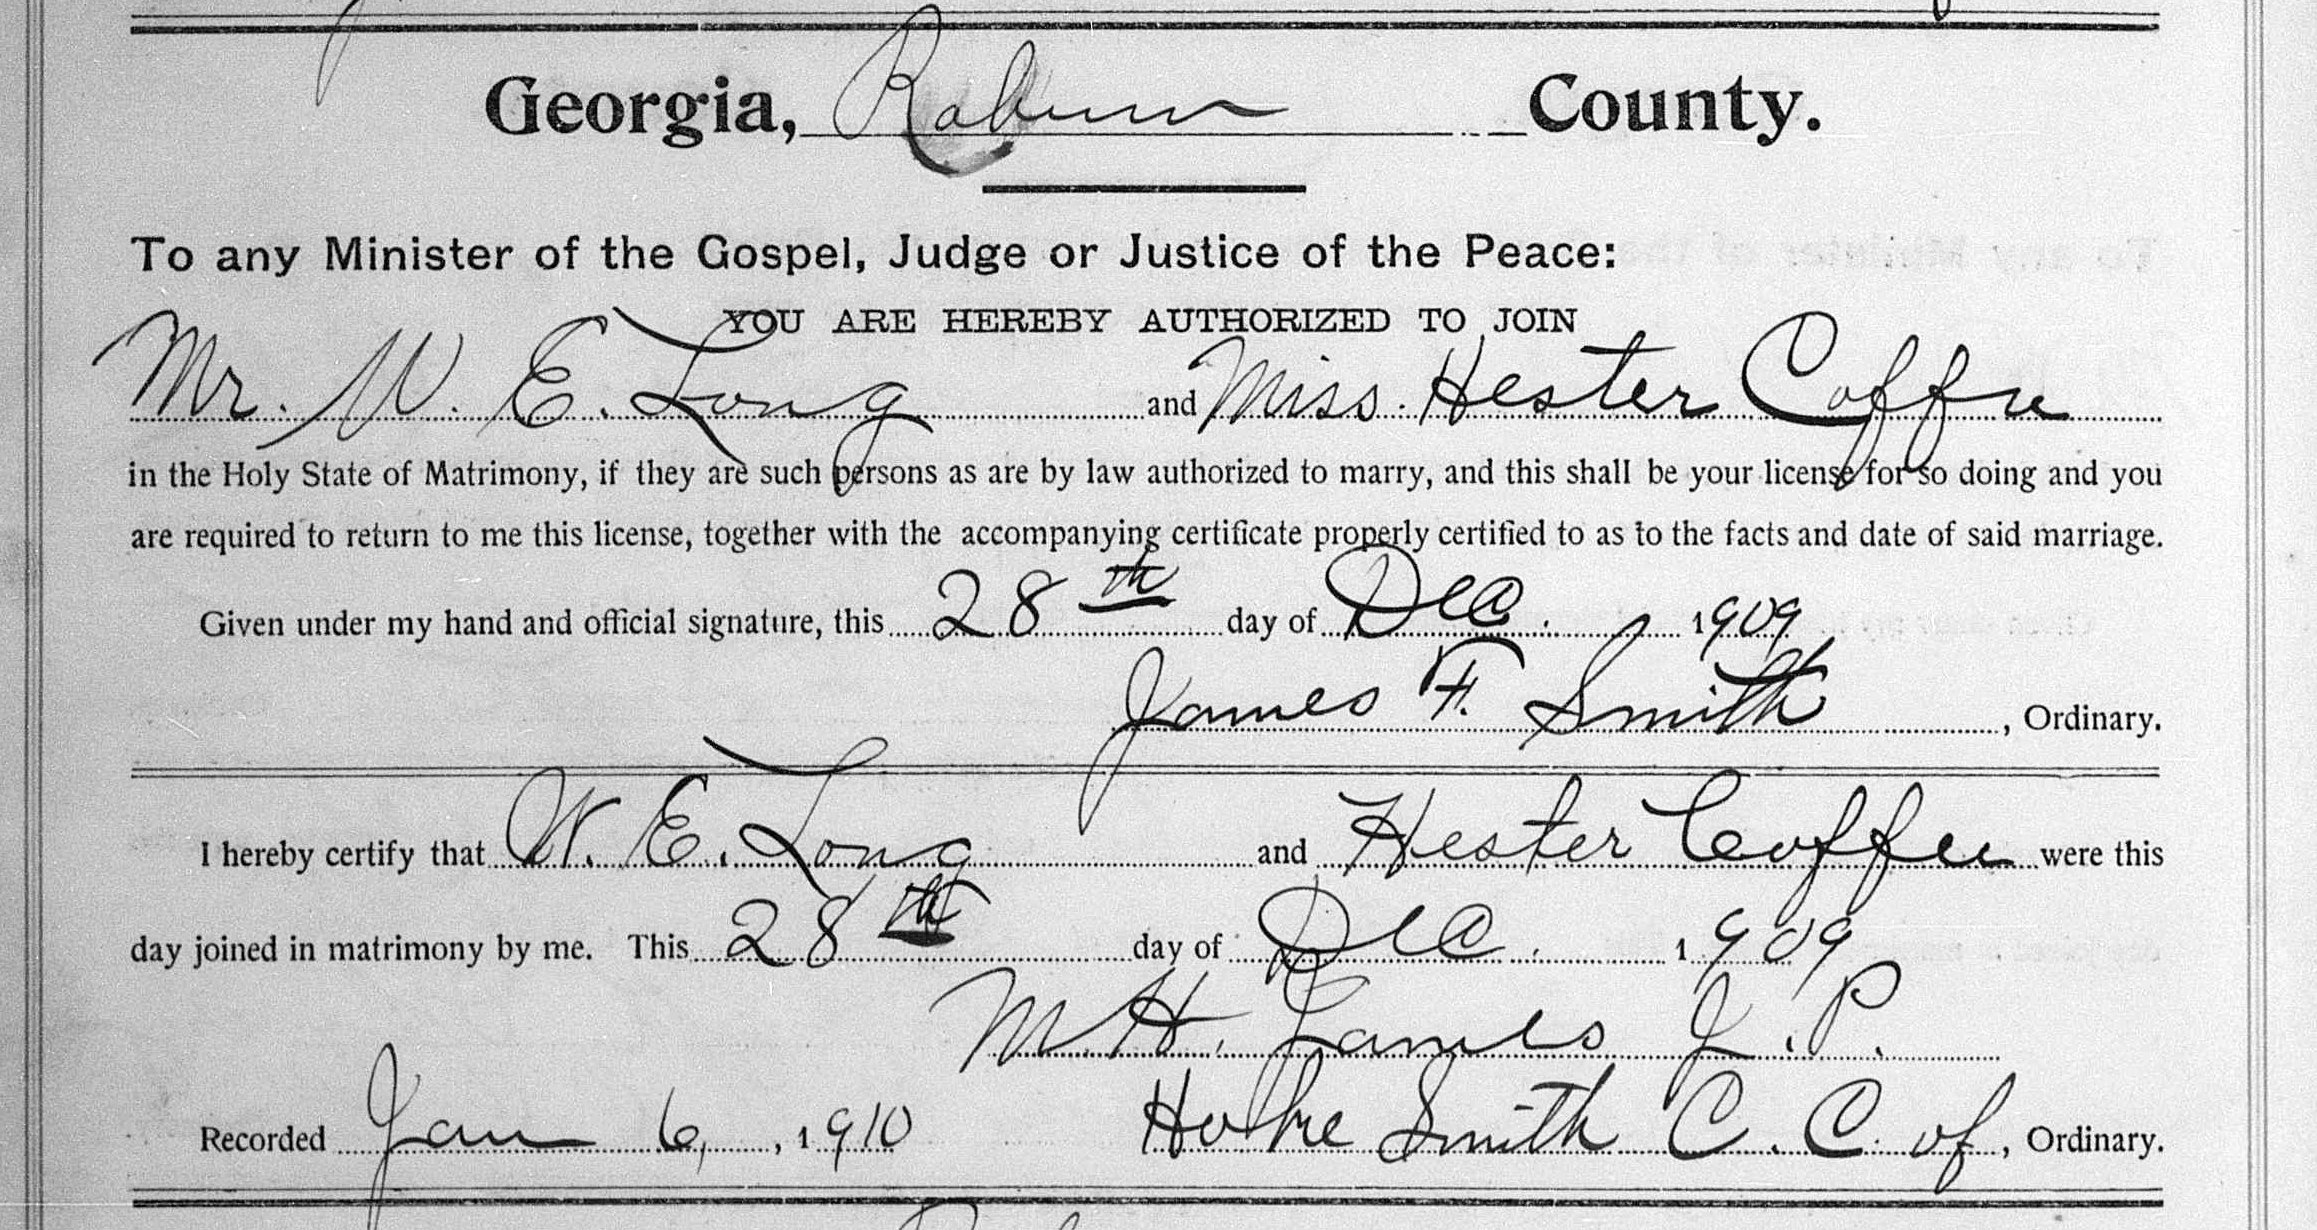 Georgia, Rabun County.
To any Minister of the Gospel, Judge or Justice of the Peace:
YOU ARE HEREBY AUTHORIZED TO JOIN
Mr. W. E. Long and Miss. Hester Coffee
in the Holy State of Matrimony, if they are such persons as are by law authorized to marry, and this shall be your license for so doing and you
are required to return to me this license, together with the accompanying certificate properly certified to as to the facts and date of said marriage.
Given under my hand and official signature, this 28th day of Dec. 1909
James F. Smith, Ordinary.
I hereby certify that W. E. Long and Hester Coffee were this
day joined in matrimony by me. This 28th day of Dec. 1909
M. H. James J. P.
Recorded Jan 6, , 1910 Hoke Smith C. C. of, Ordinary.